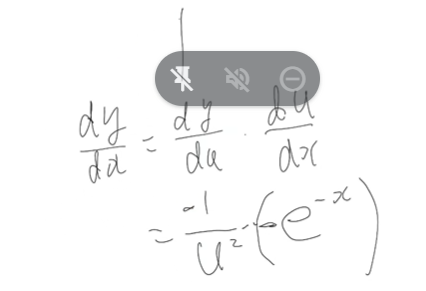 dy/dx = dy/du · du/dx
= -1/u² · (-e^{-x})